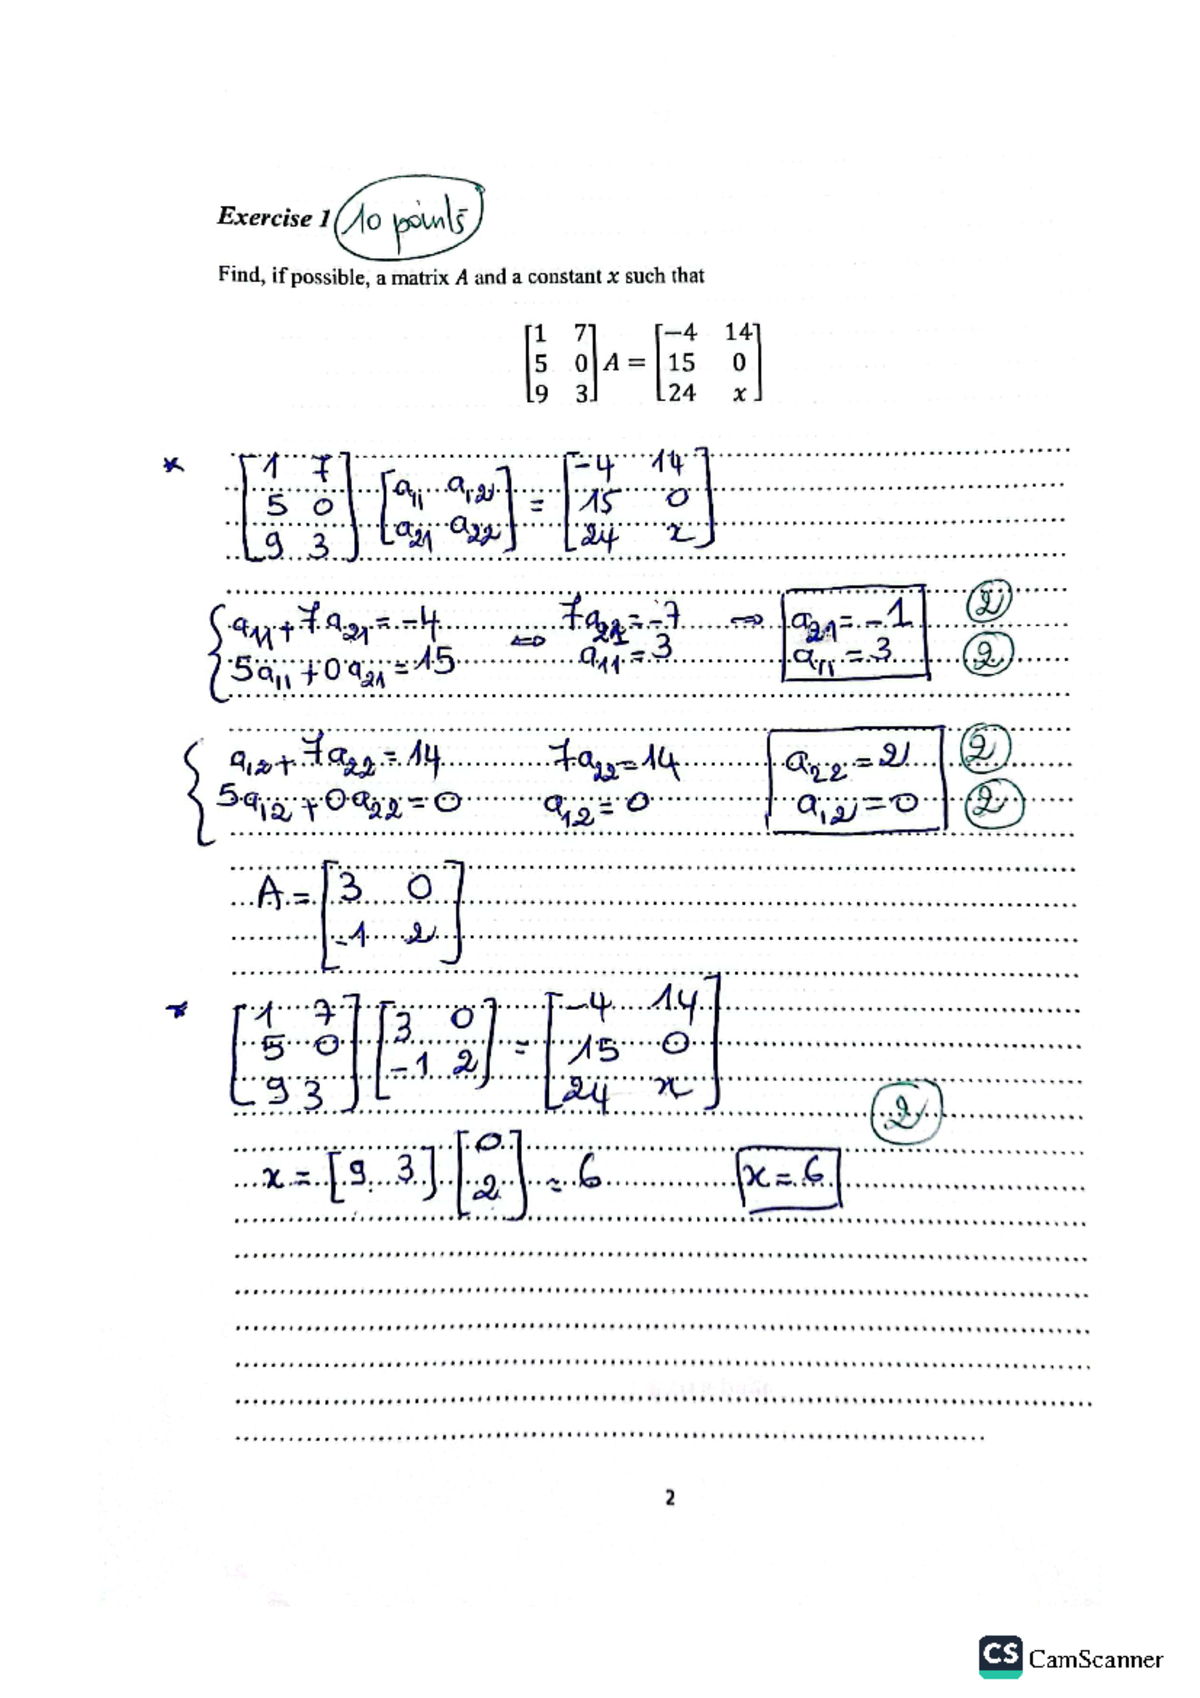 Exercise 1 10 points
Find, if possible, a matrix A and a constant x such that
[1 7; 5 0; 9 3] A = [−4 14; 15 0; 24 x]
* [1 7; 5 0; 9 3] [a11 a12; a21 a22] = [-4 14; 15 0; 24 x]
a11 + 7a21 = -4 ⇔ 7a21 = -7 ⇔ a21 = -1 2
5a11 + 0a21 = 15 a11 = 3 a11 = 3 2
a12 + 7a22 = 14 7a22 = 14 a22 = 2 2
5a12 + 0a22 = 0 a12 = 0 a12 = 0 2
A = [3 0; -1 2]
* [1 7; 5 0; 9 3] [3 0; -1 2] = [-4 14; 15 0; 24 x]
2
x = [9 3] [0; 2] = 6 x = 6
2
CS CamScanner